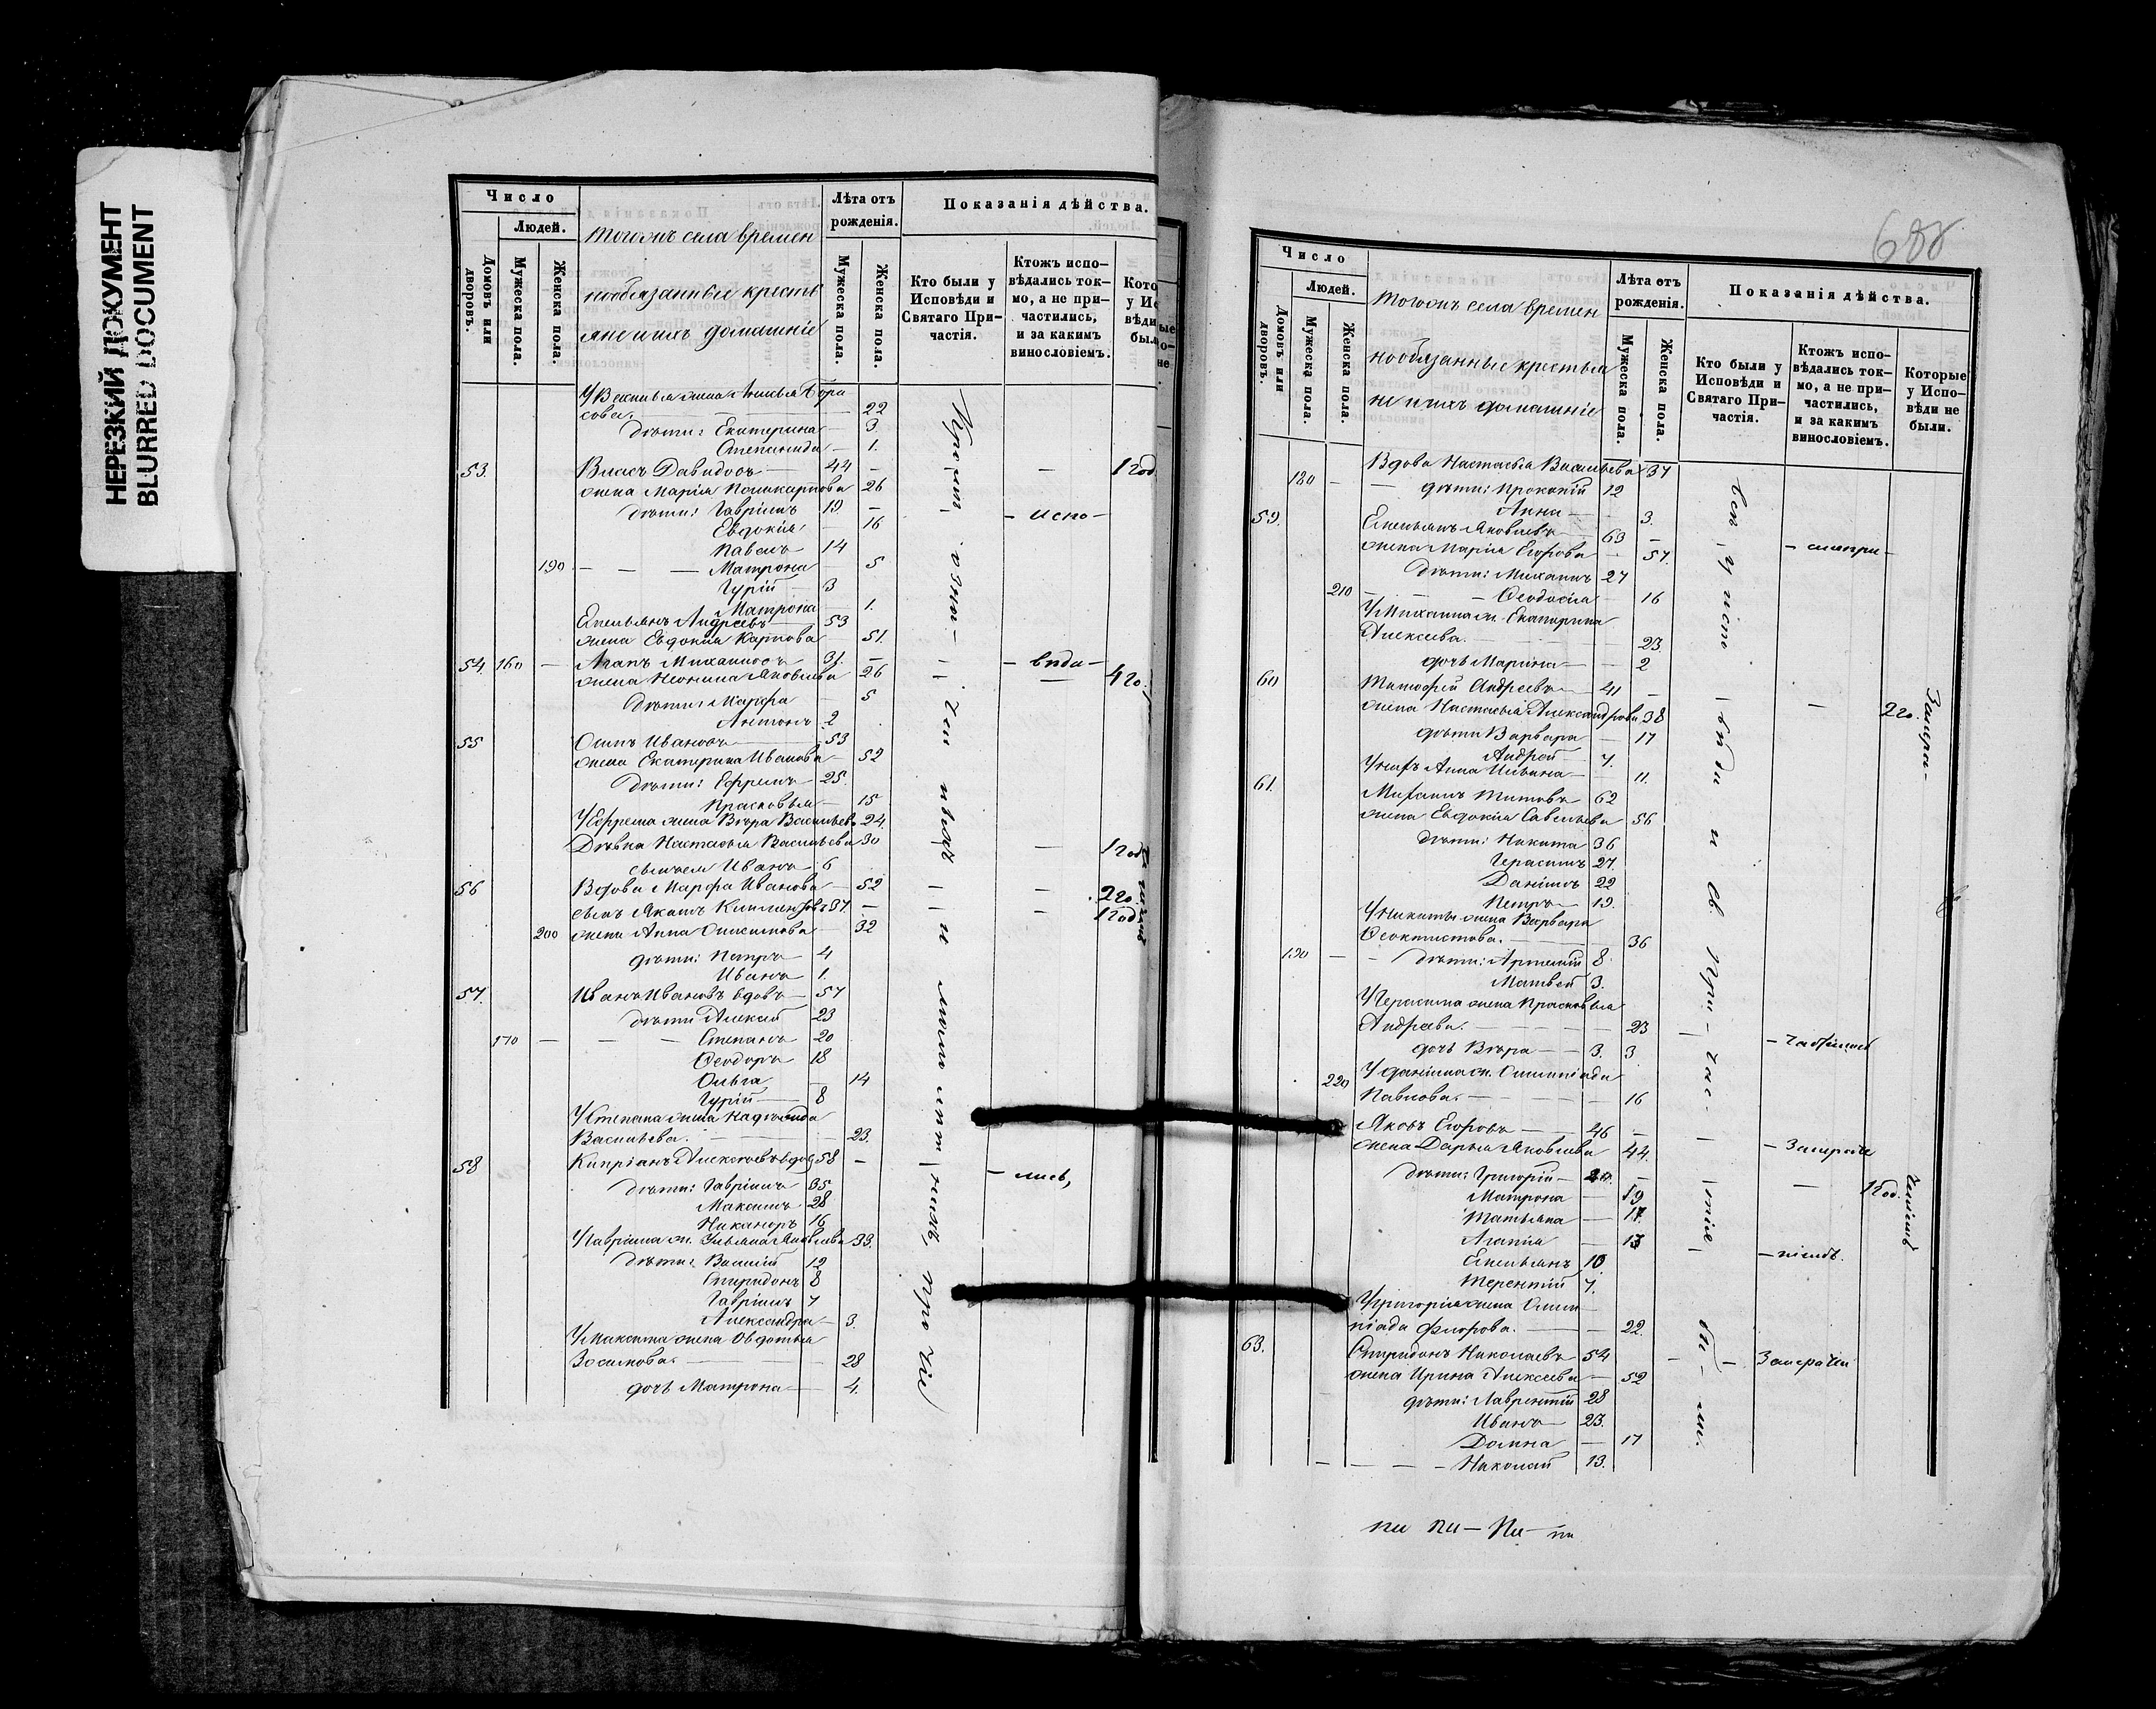 НЕРЕЗКИЙ ДОКУМЕНТ
BLURRED DOCUMENT
Число
Людей.
Домовъ или дворовъ.
Мужеска пола.
Женска пола.
Тогожъ села времен
нообязанные кресть
яне и ихъ домашніе
Лѣта отъ рожденія.
Мужеска пола.
Женска пола.
Показанія дѣйства.
Кто были у Исповѣди и Святаго Причастія.
Ктожъ исповѣдались токмо, а не причастились, и за какимъ винословіемъ.
У Василья жена Аксинья Бори
сова. 22
дѣти: Екатерина 3
Степанида 1.
53. Власъ Давидовъ 44 1 год
жена Марія Поликарпова 26
дѣти: Гавріилъ 19. – испо –
Евдокія 16
Павелъ 14
190 Матрона 5
Гурій 3
Матрона 1.
Емельянъ Андреевъ 53
жена Евдокия Карпова 51.
54. 160 Агапъ Михайловъ 31. – вѣда –
жена Неонила Яковлева 26 4 го.
дѣти: Марфа 5
Антонъ 2
55 Осипъ Ивановъ 53
жена Екатерина Иванова 52
дѣти: Ефремъ 25.
Прасковья 15
У Ефрема жена Вѣра Васильева 24.
Дѣвка Настасья Васильева 30 1 год
сынъ ея Иванъ 6
56 Вдова Марфа Иванова 52 2 го.
сынъ Акимъ Климентовъ 37. 1 год
200 жена Анна Онисимова 32
дѣти: Петръ 4
Иванъ 1.
57. Иванъ Ивановъ вдовъ 57
дѣти Алексей 23
170 Степанъ 20
Ѳеодоръ 18
Ольга 14
Гурій 8
У Степана жена Надежда
Васильева. 23.
58 Кипріанъ Алексеевъ вдов 58 – лись,
дѣти: Гавріилъ 35
Максимъ 28
Никаноръ 16
У Гавріила ж. Ульяна Яковлева 33.
дѣти: Василій 12
Спиридонъ 8
Гавріилъ 7
Александра 3.
У Максима жена Овдотья
Зосимова. 28
дочь Матрона 4.
688
Число
Людей.
Домовъ или дворовъ.
Мужеска пола.
Женска пола.
Тогожъ села времен
нообязанные крестья
не и ихъ домашніе
Лѣта отъ рожденія.
Мужеска пола.
Женска пола.
Показанія дѣйства.
Кто были у Исповѣди и Святаго Причастія.
Ктожъ исповѣдались токмо, а не причастились, и за какимъ винословіемъ.
Которые у Исповѣди не были.
Вдова Настасья Васильева 37
180 дѣти: Прокопій 12
Анна 3.
59. Емельянъ Яковлевъ 63
жена Марія Егорова 57.
дѣти: Михаилъ 27
210 Ѳеодосія 16
У Михаила ж. Екатерина
Алексеева. 23.
дочь Марина 2
60 Тимофей Андреевъ 41 2 го.
жена Настасья Александрова 38
дѣти Варвара 17
Андрей 7.
У нихъ Анна Ильина 11.
61. Михаилъ Титовъ 62
жена Евдокия Савельева 56
дѣти: Никита 36
Герасимъ 27.
Даніилъ 22
Петръ 19.
У Никиты жена Варвара
Ѳеоктистова. 36
190 дѣти: Артемій 8.
Матвей 3.
У Герасима жена Прасковья
Андреева. 23
дочь Вѣра 3. 3
У Даніила ж. Олимпіада
220 Павлова. 16
Яковъ Егоровъ 46
жена Дарья Яковлева 44.
дѣти: Григорій 1 год.
Матрона 19
Татьяна 17.
Агапія 13
Емельянъ 10
Терентій 7.
У Григорія жена Олим
піада Флорова. 22.
63. Спиридонъ Николаевъ 54
жена Ирина Алексеева 52
дѣти: Лаврентій 28
Иванъ 23.
Домна 17
Николай 13.